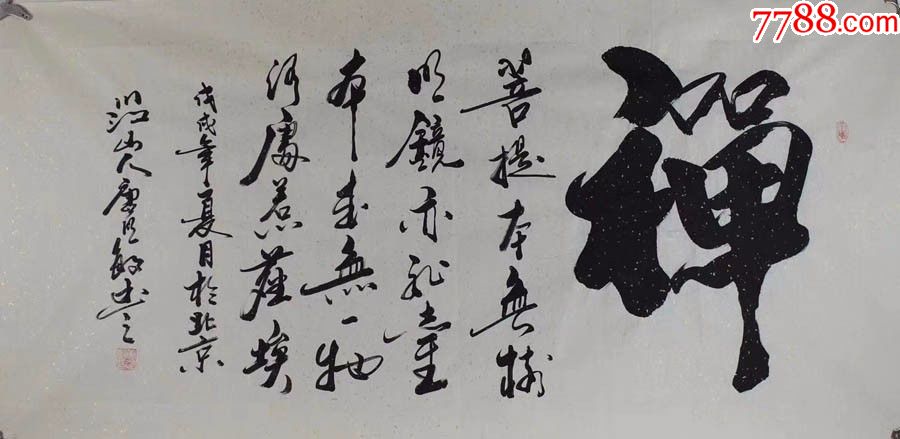 7788.com
禪
菩提本無樹
明鏡亦非臺
本来無一物
何處惹塵埃
戊戌年夏月於北京
山人唐敏之